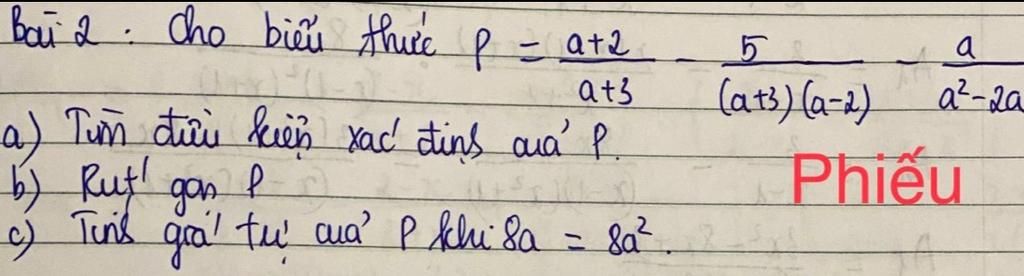 Bài 2: Cho biểu thức P = \frac{a+2}{a+3} - \frac{5}{(a+3)(a-2)} - \frac{a}{a^2-2a}
a) Tìm điều kiện xác định của P.
b) Rút gọn P
Phiếu
c) Tính giá trị của P khi 8a = 8a².